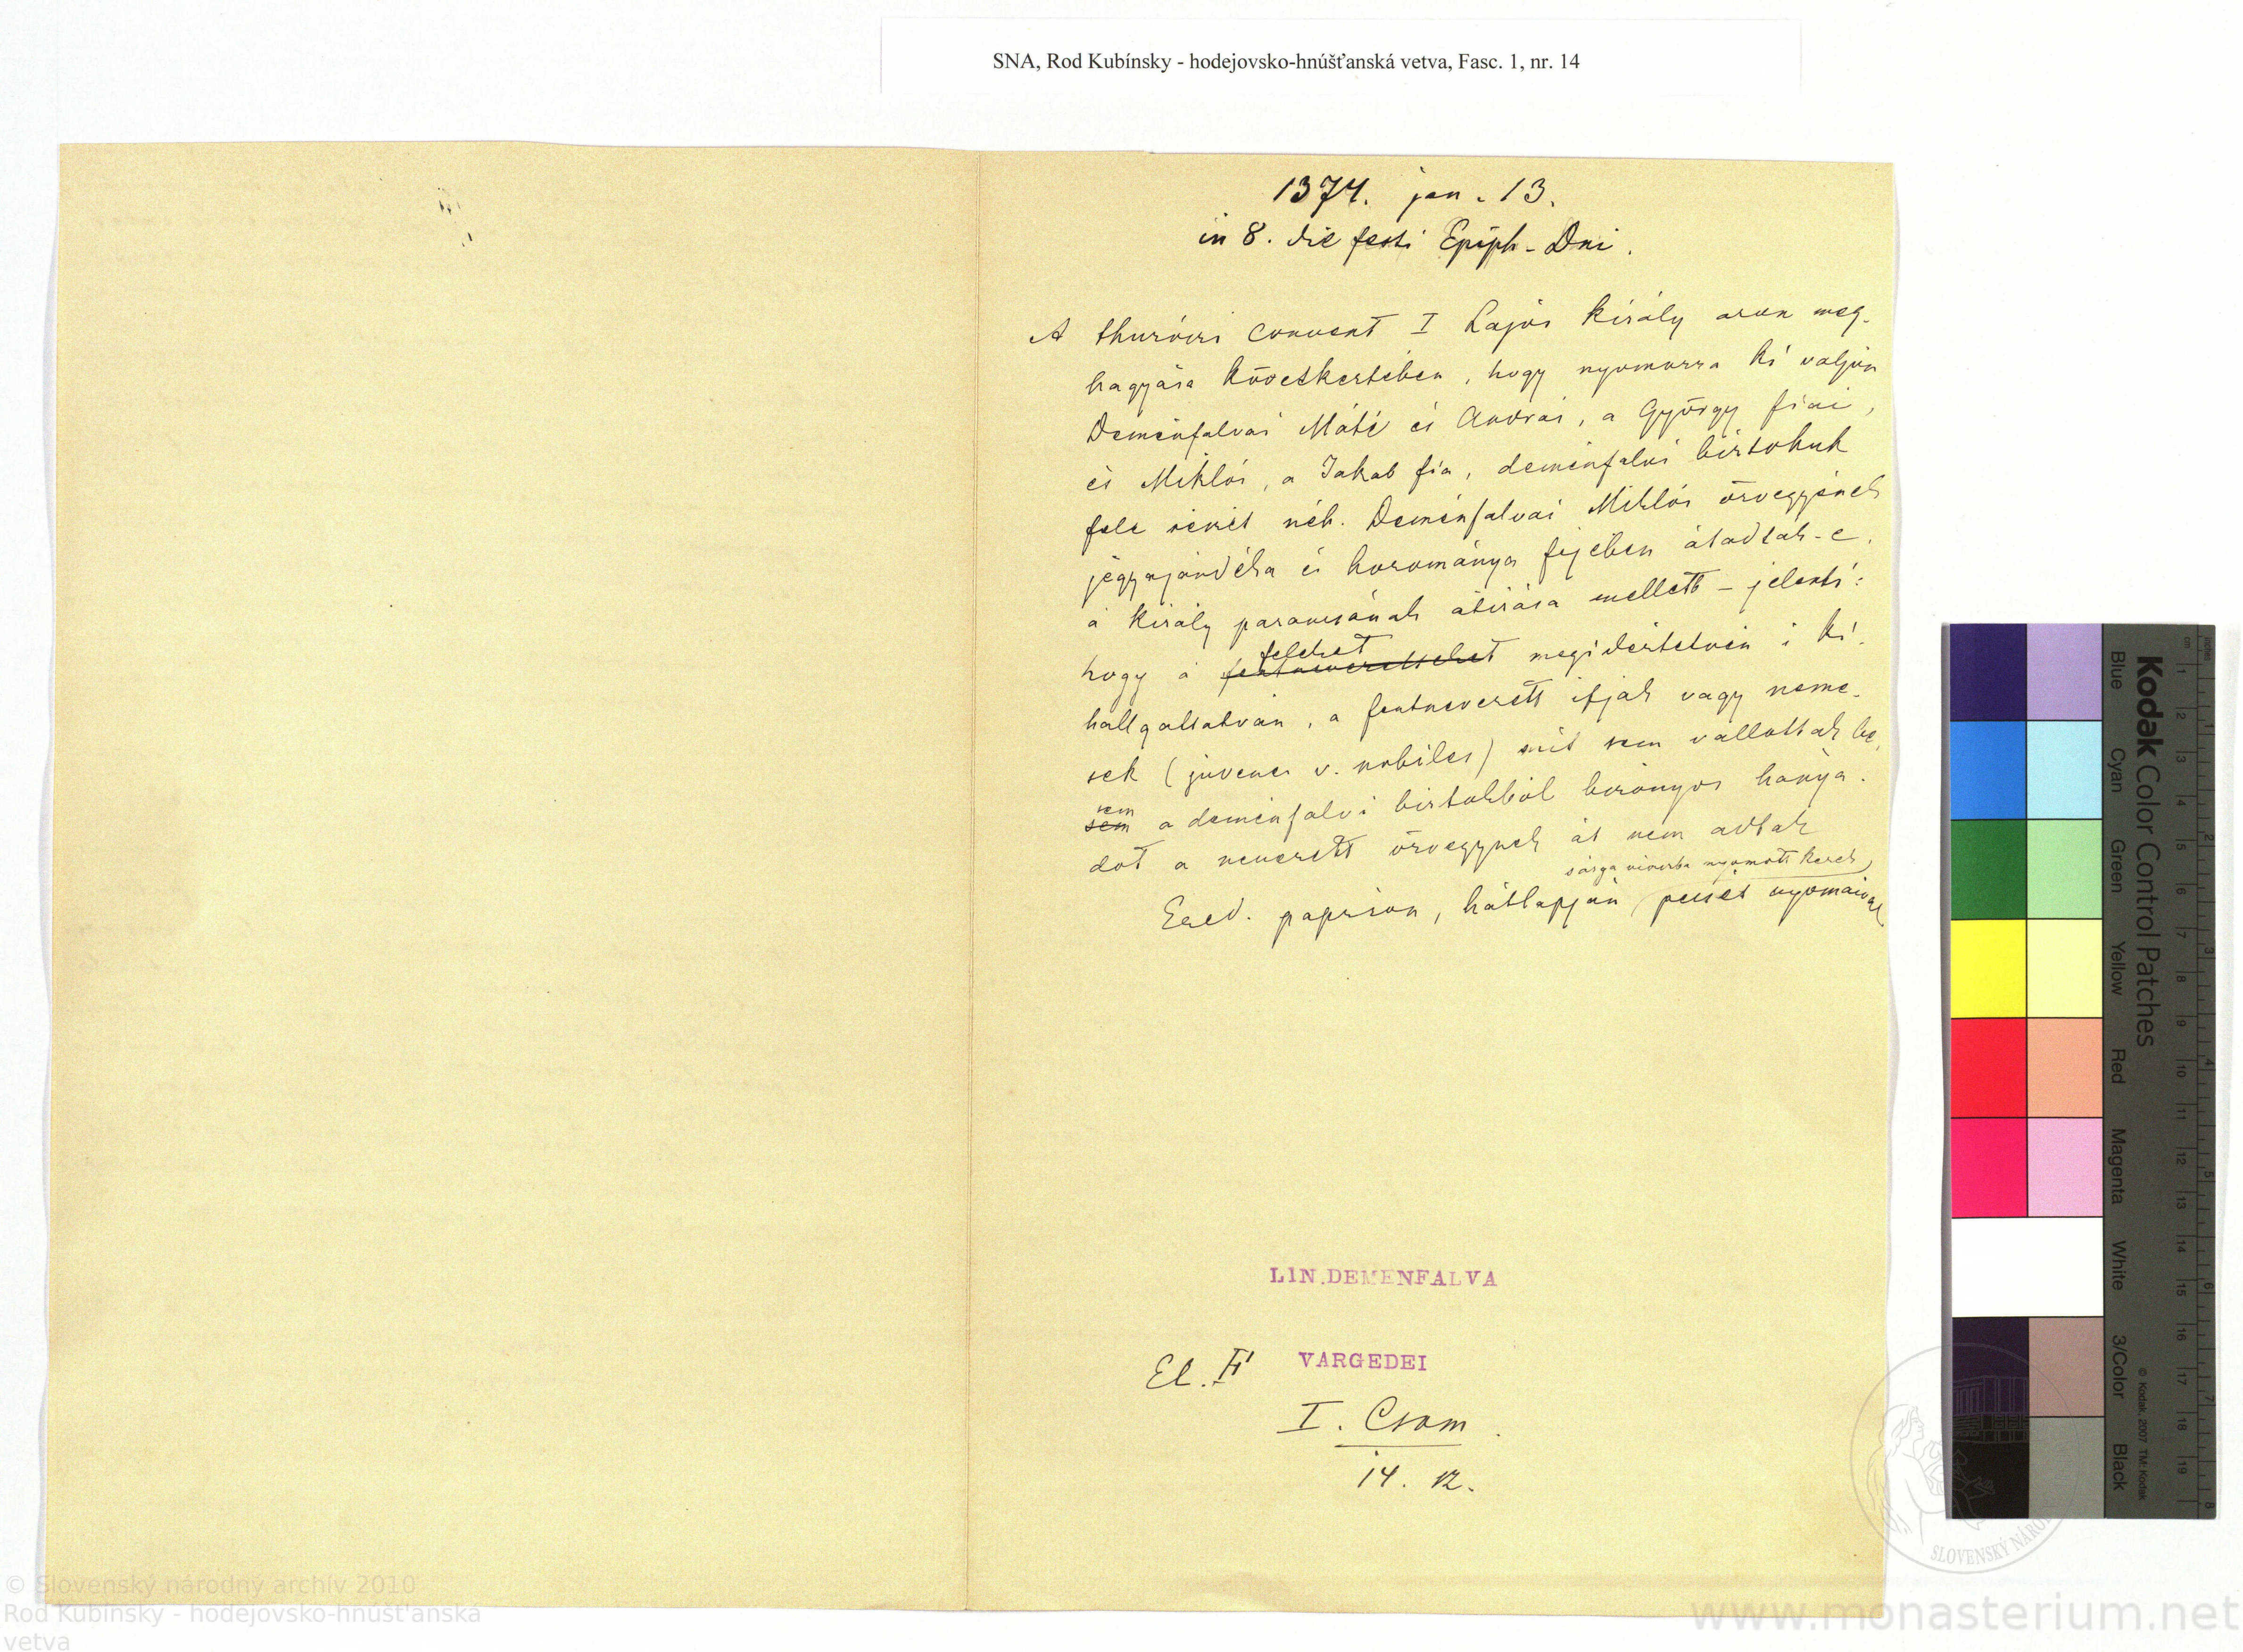 SNA, Rod Kubínsky - hodejovsko-hnúšťanská vetva, Fasc. 1, nr. 14
1374. jan. 13.
in 8. die festi Epiph. Dni.
A thuróczi convent I Lajos király azon meg-
hagyása következtében, hogy nyomozza ki valjon
Deménfalvai Máté és András, a György fiai,
és Miklós, a Jakab fia, deménfalvi birtokuk
fele részét néh. Deménfalvai Miklós özvegyének
jegyajándéka és hozománya fejében átadták-e,
a király parancsának átirása mellett – jelenti:
hogy a feleket megidéztetvén s ki-
hallgattatván, a fentnevezett ifjak vagy neme-
sek (juvenes v. nobiles) mit sem vallottak be,
sem a deménfalvi birtokból bizonyos hánya-
dot a nevezett özvegynek át nem adtak
sárga viaszba nyomott kerek
Ered. papiron, hátlapján pecsét nyomaival
LIN.DEMENFALVA
El. F
VARGEDEI
I. Csom.
14. sz.
Kodak Color Control Patches
Blue Cyan Green Yellow Red Magenta White 3/Color Black
© Kodak, 2007 TM: Kodak
© Slovenský národný archív 2010
Rod Kubínsky - hodejovsko-hnúšťanská
vetva
SLOVENSKÝ NÁROD
www.monasterium.net